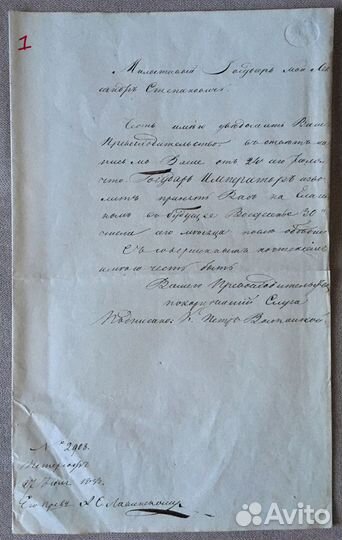 1
Милостивый Государь мой Але
сандръ Степановичъ.
Честь имѣю увѣдомить Ваше
Превосходительство въ отвѣтъ на
письмо Ваше отъ 24го Іюля,
что Государь Императоръ изво
литъ принять Васъ на Елаги
номъ въ будущее Воскресенье 30го
числа сего мѣсяца после обѣдни
Съ совершеннымъ почтеніемъ
имѣю честь быть
Вашего Превосходительства
покорнѣйшій Слуга
Подписано: К. Петръ Волконской.
№ 2903.
Петергофъ
27 Іюля
Его Прев. А. С. Лавинскому
Avito